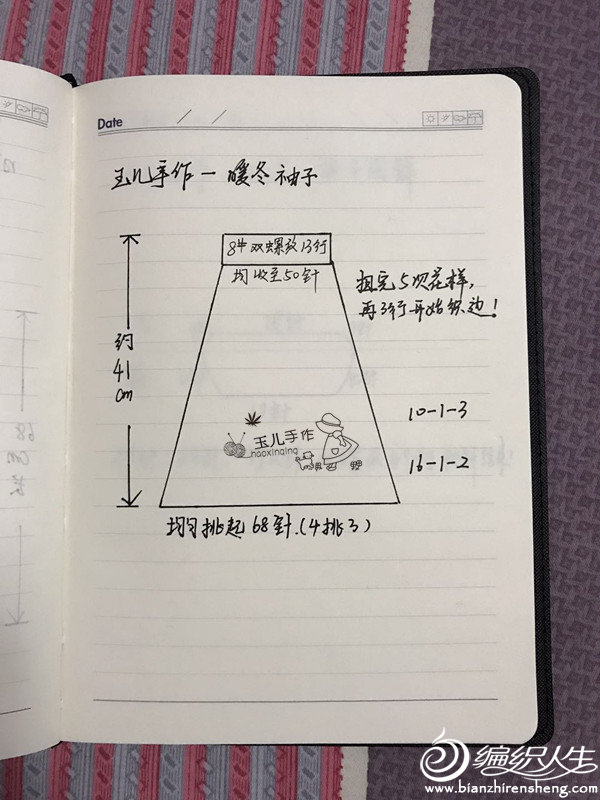 Date / /
玉儿手作－暖冬袖子
8#双螺纹13行
均收至50针
扭完5次花样,
再3行开始织边!
约
41
cm
10-1-3
16-1-2
玉儿手作
haoxinqing
均匀挑起68针.(4挑3)
68
cm
长
编织人生
www.bianzhirensheng.com